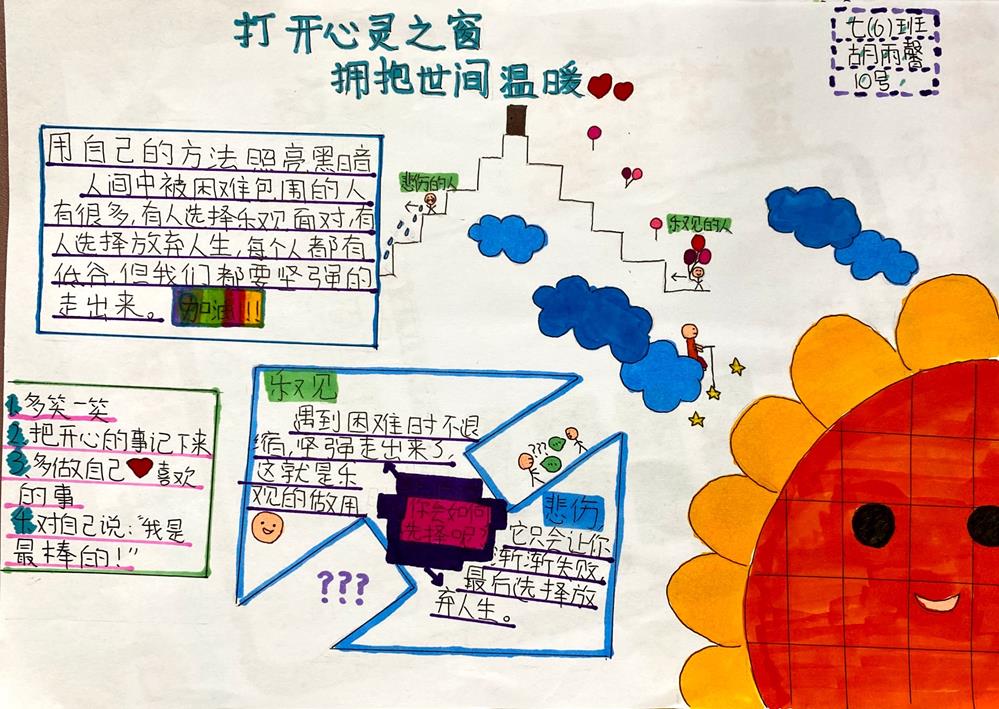 打开心灵之窗
拥抱世间温暖
七(6)班
胡雨馨
10号
用自己的方法照亮黑暗
人间中被困难包围的人
有很多,有人选择乐观面对,有
人选择放弃人生,每个人都有
低谷,但我们都要坚强的
走出来。加油!!!
悲伤的人
乐观的人
1.多笑一笑
2.把开心的事记下来
3.多做自己喜欢
的事
4.对自己说:“我是
最棒的!”
乐观
遇到困难时不退
缩,坚强走出来了,
这就是乐
观的做用
你会如何
选择呢?
???
悲伤
它只会让你
渐渐失败,
最后选择放
弃人生。
???